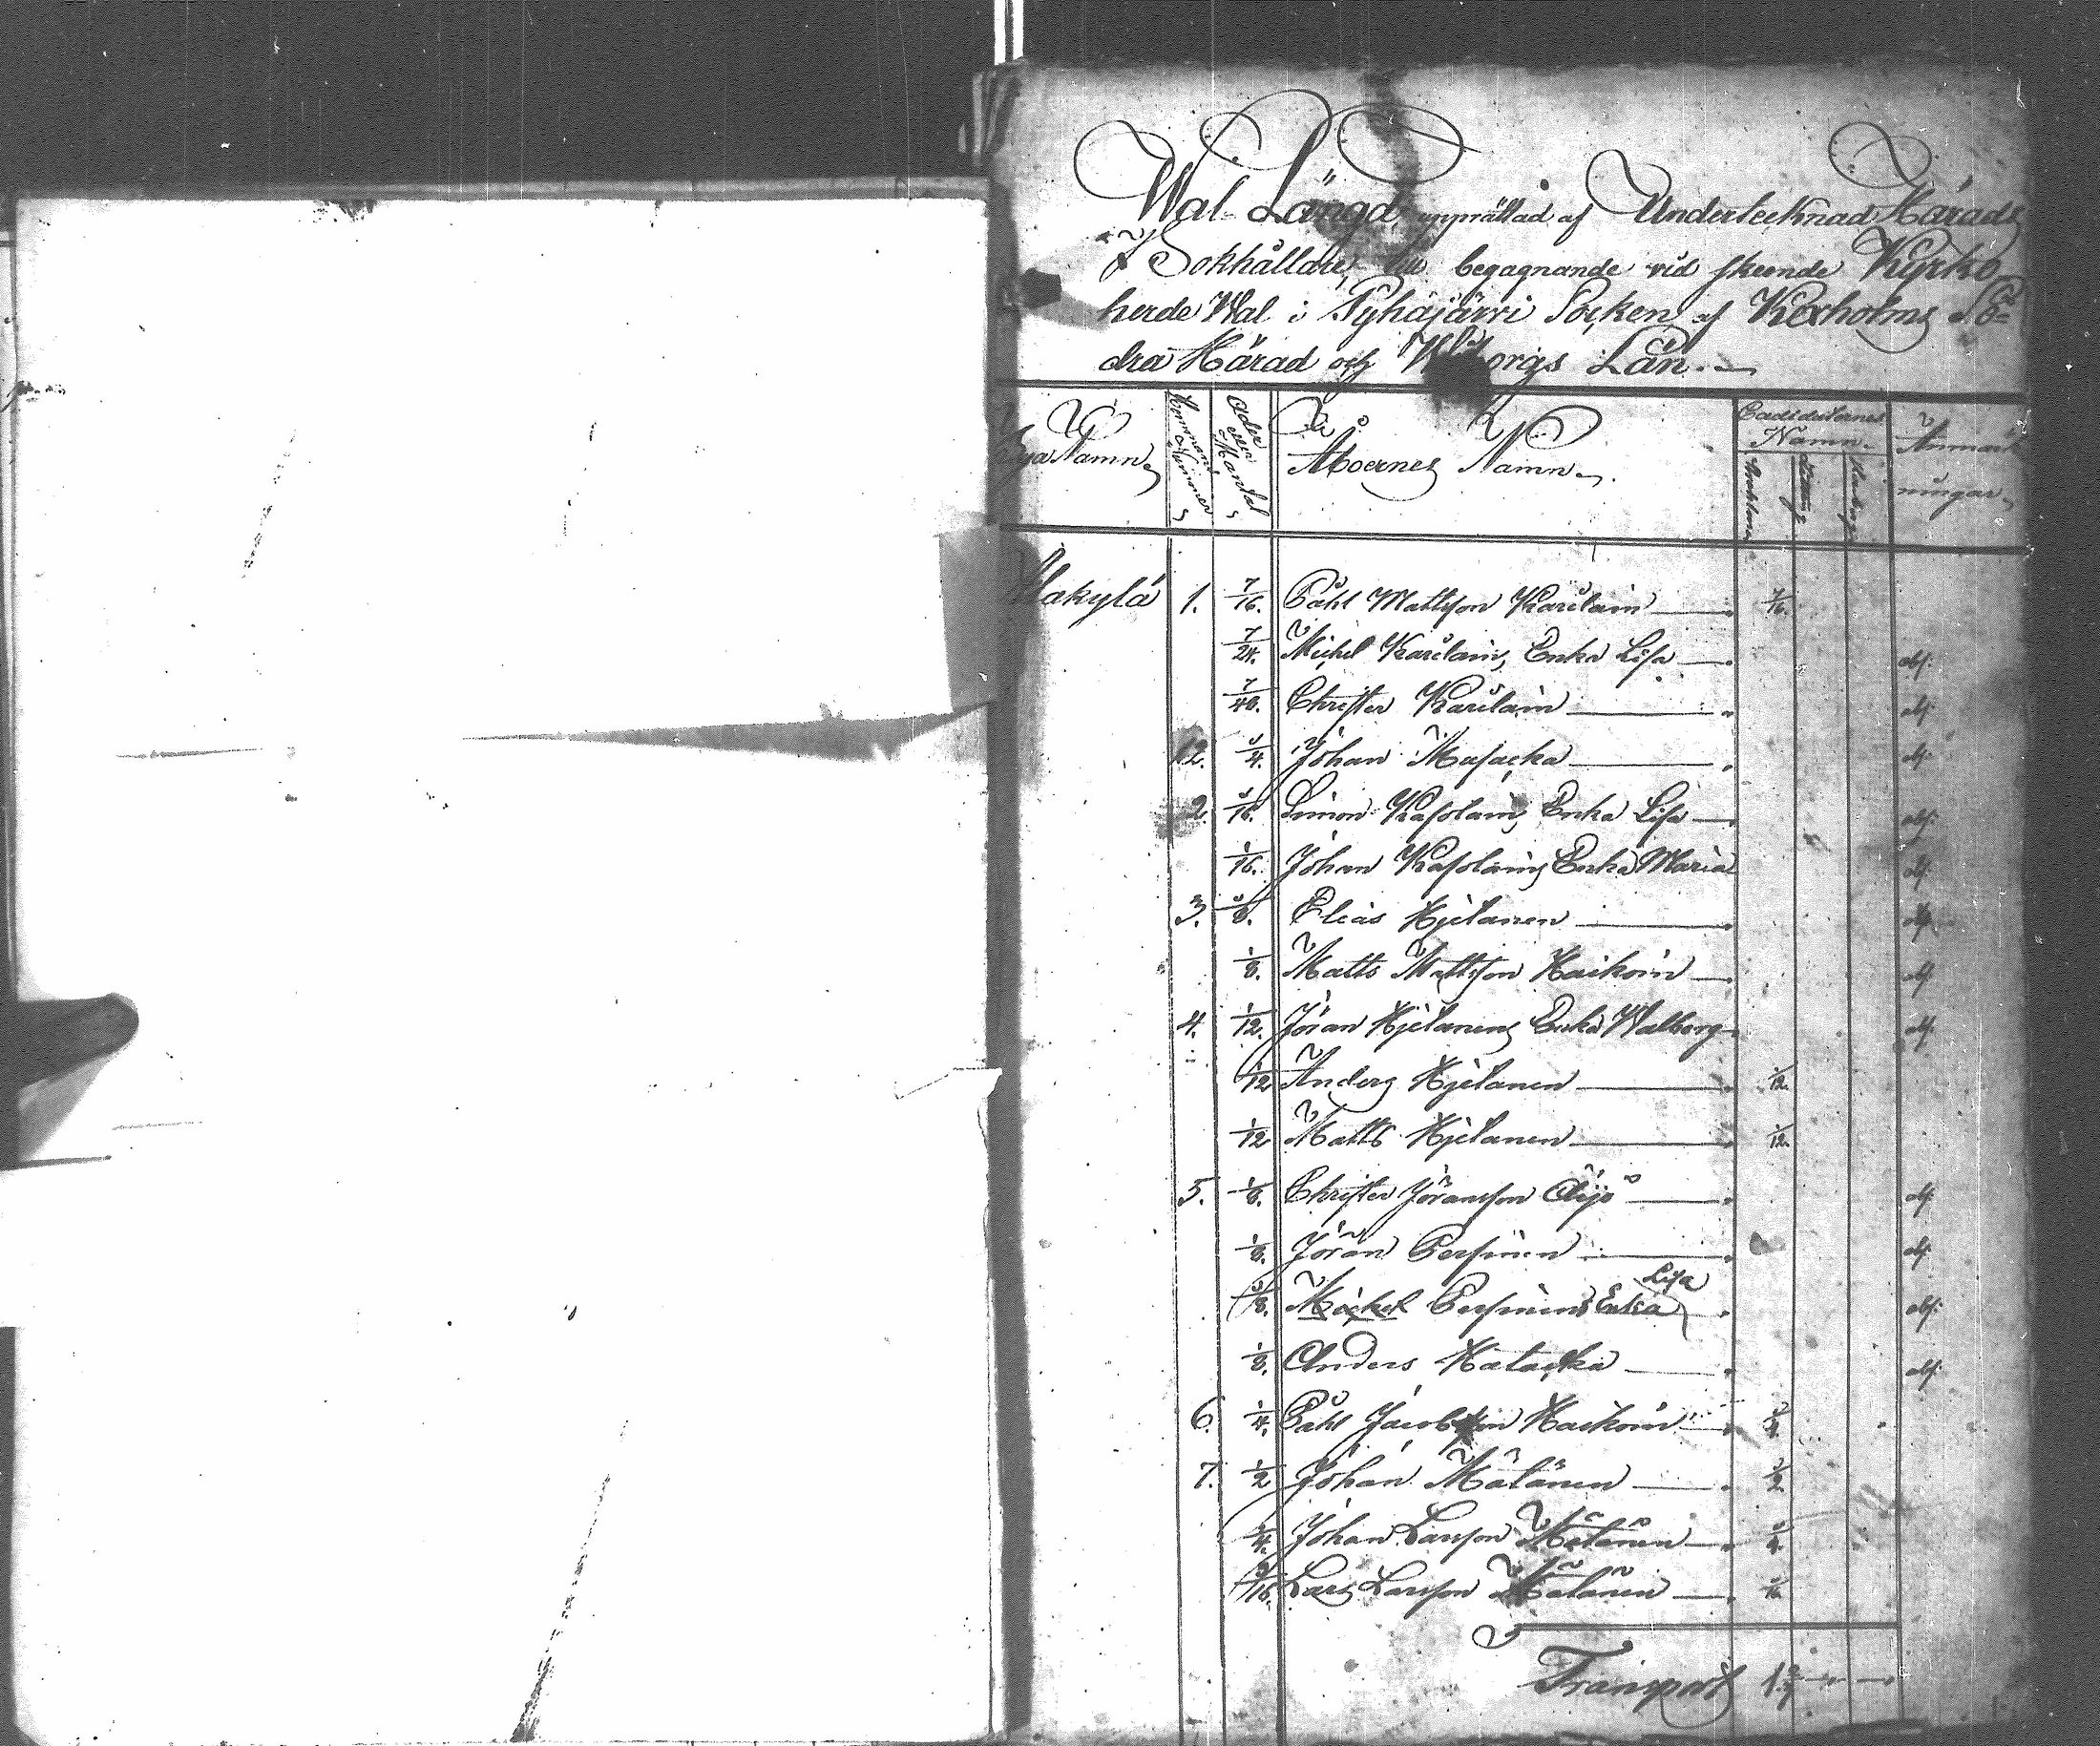 Wal Längd, upprättad af Undertecknad Härads
Bokhållare, till begagnande vid skeende Kyrko-
herde Wal i Pyhäjärvi Socken af Kexholms Sö-
dra Härad och Wiborgs Län.
Bya Namn Hemmans Nummer Öder eller Mantal Åboernes Namn. Candidaternes Namn. Anmärk
ningar
Alakylä 1. 7/16. Påhl Mattsson Karilain 7/16.
7/24. Michel Karilains Enka Lisa obf.
7/48. Christer Karilain obf.
12. 1/4. Johan Masacka obf.
2. 1/16. Simon Kasolains Enka Lisa obf.
1/16. Johan Kasolains Enka Maria obf.
3. 1/8. Elias Hjetanen obf.
1/8. Matts Mattsson Kaikoin obf.
4. 1/12. Jöran Hjetanens Enka Walborg obf.
1/12 Anders Hjetanen 1/12.
1/12 Matts Hjetanen 1/12.
5. 1/8. Christer Jöransson Äijö obf.
1/8. Jöran Persinen obf.
1/8. Michel Persinens Enka Lisa obf.
1/8. Anders Hatacka obf.
6. 1/4. Påhl Jacobsson Kaikoin 1/4.
7. 1/2 Johan Mätänen 1/2
1/4. Johan Larsson Mätänen 1/4.
1/16. Lars Larsson Mätänen 1/16.
Transport